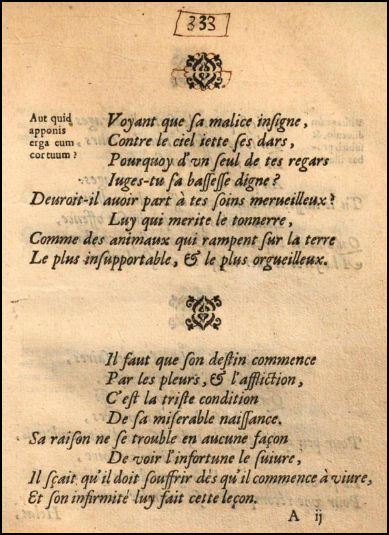 333
Aut quid
apponis
erga eum
cor tuum?
Voyant que sa malice insigne,
Contre le ciel iette ses dars,
Pourquoy d'vn seul de tes regars
Iuges-tu sa bassesse digne?
Deuroit-il auoir part à tes soins merueilleux?
Luy qui merite le tonnerre,
Comme des animaux qui rampent sur la terre
Le plus insupportable, & le plus orgueilleux.
Il faut que son destin commence
Par les pleurs, & l'affliction,
C'est la triste condition
De sa miserable naissance.
Sa raison ne se trouble en aucune façon
De voir l'infortune le suiure,
Il sçait qu'il doit souffrir dés qu'il commence à viure,
Et son infirmité luy fait cette leçon.
A ij